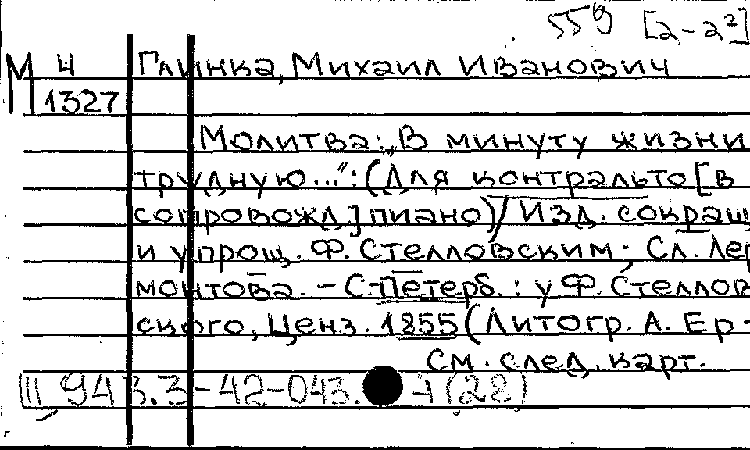 559 [2-2²]
М 4 Глинка, Михаил Иванович
1327
Молитва: „В минуту жизни
трудную...": (Для контральто [в
сопровожд.] пиано) / Изд. сокращ.
и упрощ. Ф. Стелловским; Сл. Лер-
монтова. - С.-Петерб.: у Ф. Стеллов-
ского, Ценз. 1855 (Литогр. А. Ер-
См. след. карт.
943.3-42-043. (28)